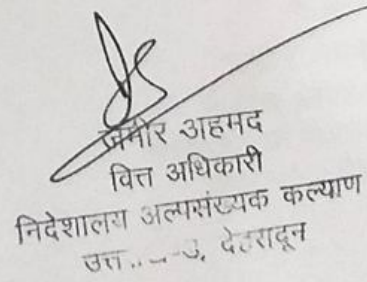 जमीर अहमद
वित्त अधिकारी
निदेशालय अल्पसंख्यक कल्याण
देहरादून